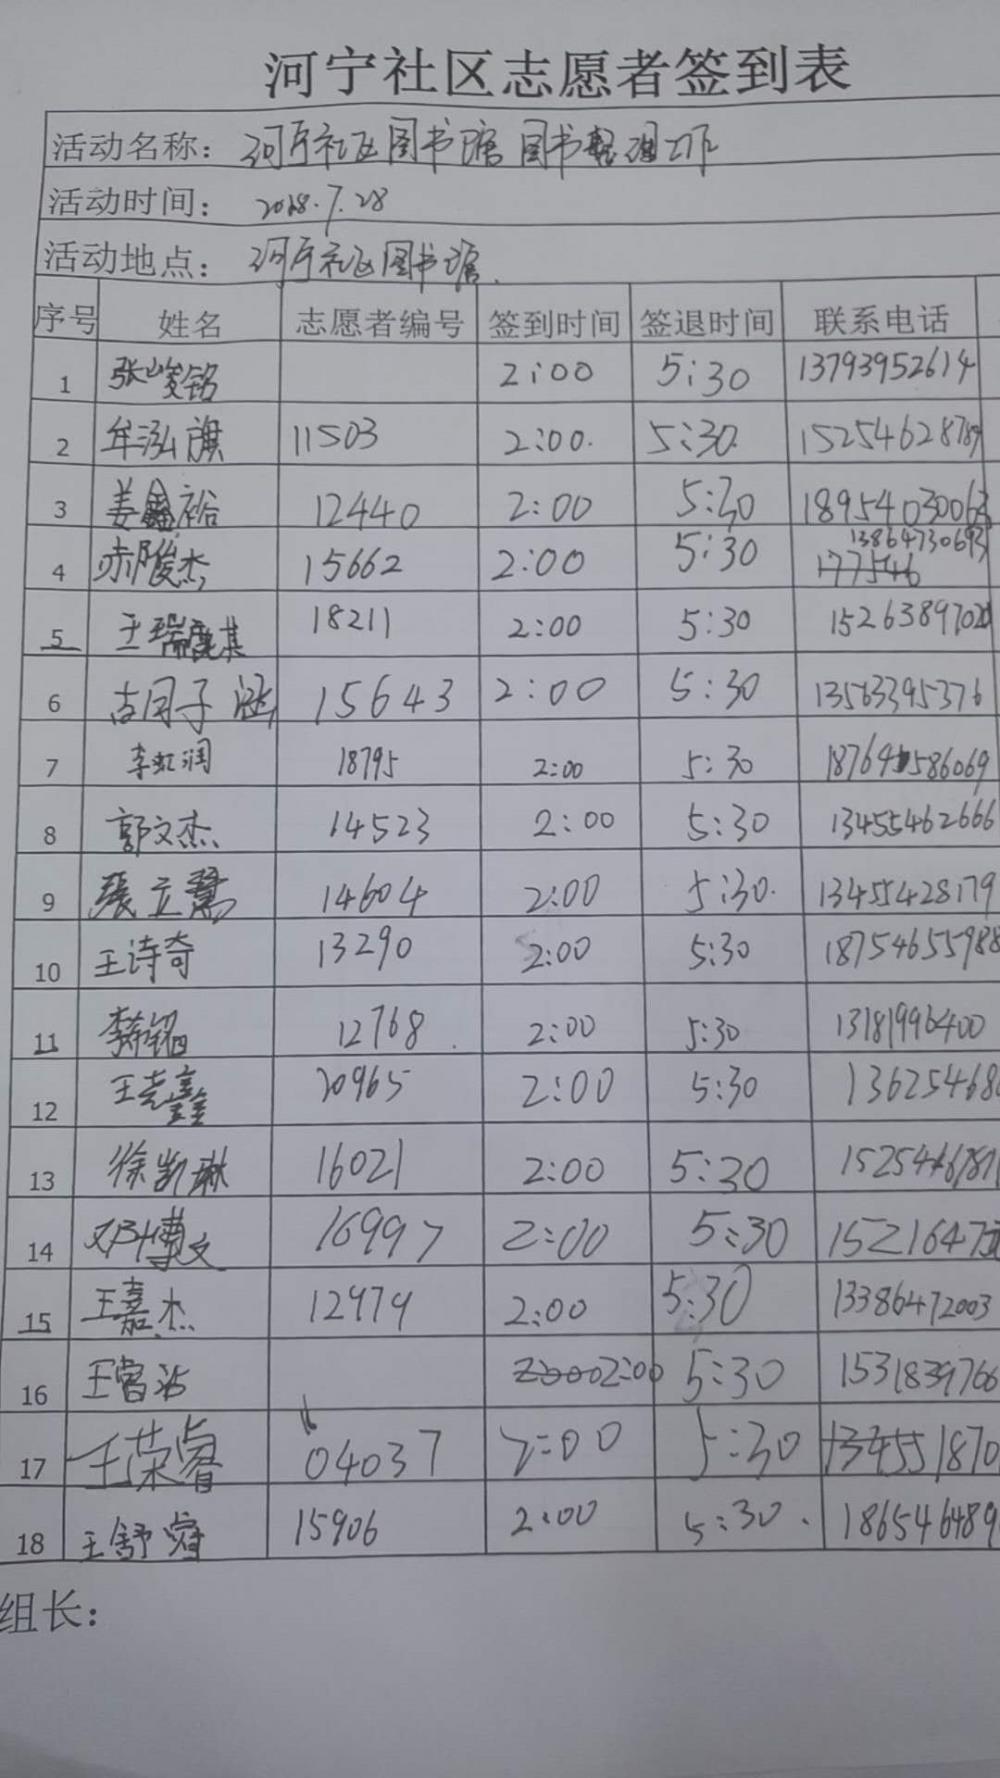 河宁社区志愿者签到表
活动名称： 河宁社区图书馆 图书整理工作
活动时间： 2018.7.28
活动地点： 河宁社区图书馆
序号 姓名 志愿者编号 签到时间 签退时间 联系电话
1 张峻铭 2:00 5:30 13793952614
2 牟泓旗 11503 2:00 5:30 15254628789
3 姜鑫裕 12440 2:00 5:30
4 俊杰 15662 2:00 5:30 13864730693
177546
5 王瑞 18211 2:00 5:30
6 子涵 15643 2:00 5:30 13563395376
7 李虹润 18795 2:00 5:30
8 郭文杰 14523 2:00 5:30 13455462666
9 張立 14604 2:00 5:30 13455428179
10 王诗奇 13290 2:00 5:30 18754655988
11 李 铭 12768 2:00 5:30 13181996400
12 王 鑫 20965 2:00 5:30 13625468
13 徐凯琳 16021 2:00 5:30
14 邓博文 16997 2:00 5:30
15 王嘉杰 12979 2:00 5:30 13386472003
16 王富 2:00 5:30 1531839766
17 王荣睿 04037 2:00 5:30 1345551870
18 王舒 15906 2:00 5:30 186546489
组长：